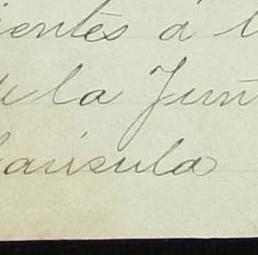 ientes á l
de la Jun
lausula